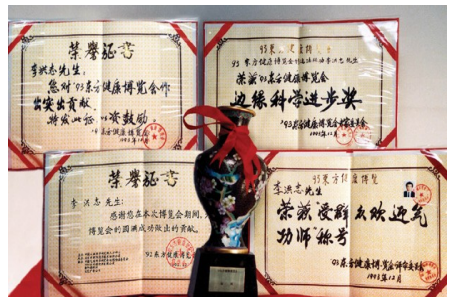 荣誉证书
李洪志先生:
您对'93东方健康博览会作
出突出贡献,
特发此证以资鼓励。
'93东方健康博览会
1993年12月
93东方健康博览会
李洪志先生
荣获'93东方健康博览会
边缘科学进步奖
'93东方健康博览会评审委员会
1993年12月
荣誉证书
李洪志先生:
感谢您在本次博览会期间,
博览会的圆满成功做出的贡献。
93东方健康博览
李洪志先生
荣获受群众欢迎气
功师称号
'93东方健康博览会评审委员会
1993年12月